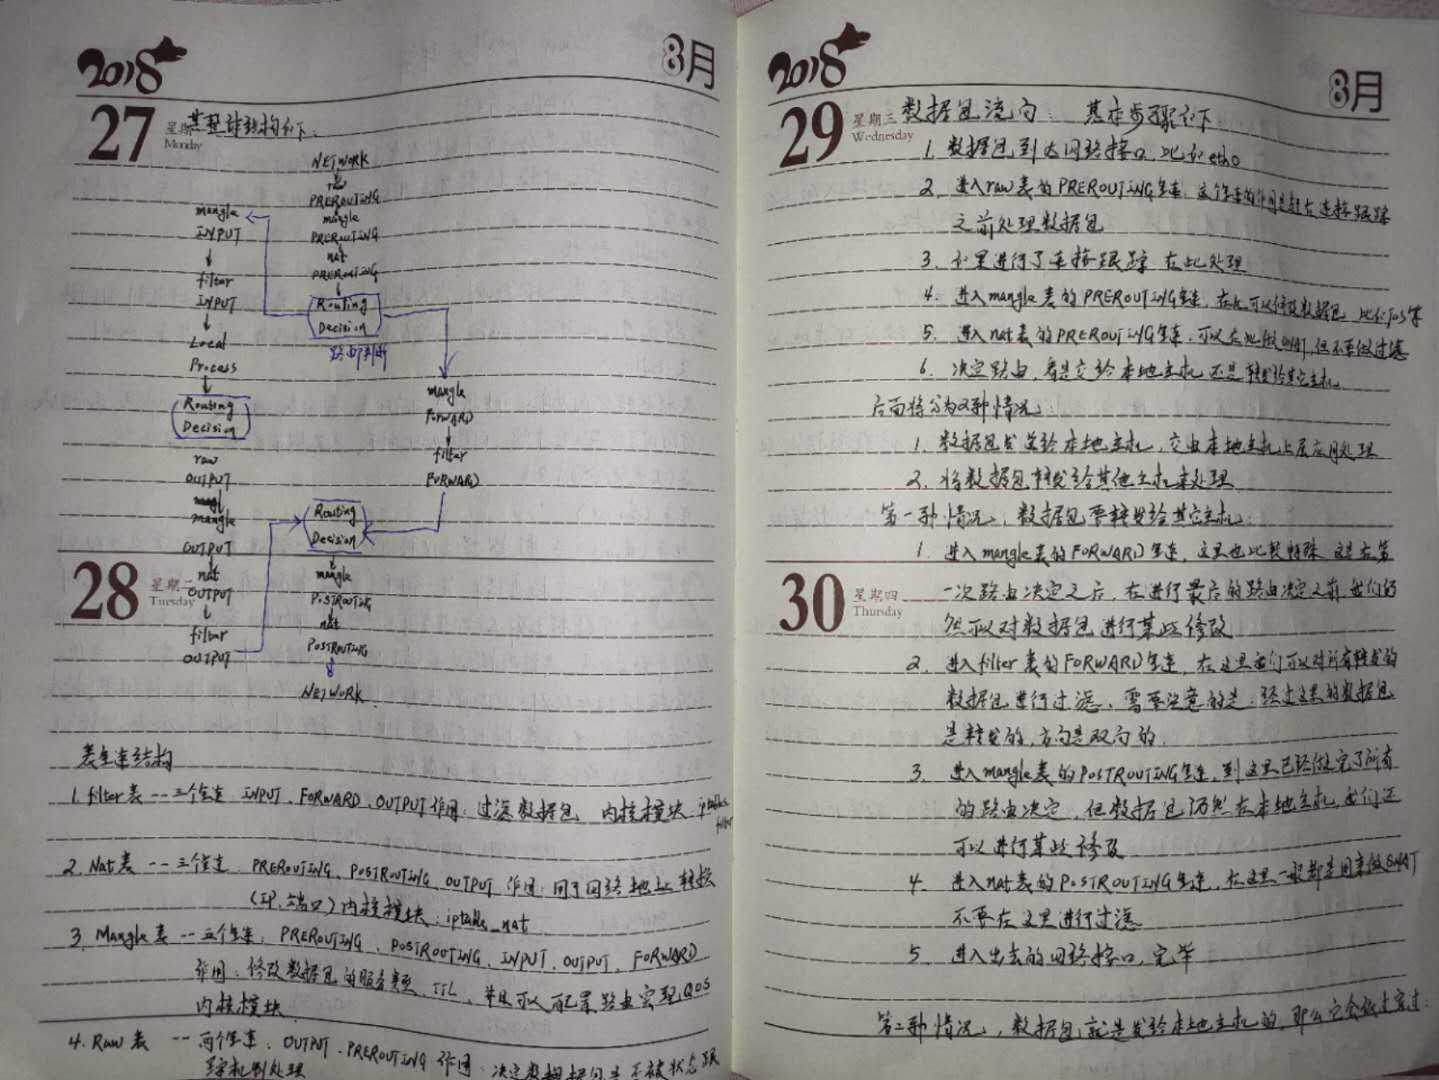 2018
8月
27
星期一
Monday
其整体结构如下:
NETWORK
raw
PREROUTING
mangle
PREROUTING
nat
PREROUTING
Routing
Decision
路由判断
mangle
INPUT
filter
INPUT
Local
Process
Routing
Decision
raw
OUTPUT
mangle
OUTPUT
nat
OUTPUT
filter
OUTPUT
mangle
FORWARD
filter
FORWARD
Routing
Decision
mangle
POSTROUTING
nat
POSTROUTING
NETWORK
28
星期二
Tuesday
表链结构
1. filter表 --三个链 INPUT、FORWARD、OUTPUT 作用:过滤数据包 内核模块:iptables filter
2. Nat表 --三个链 PREROUTING、POSTROUTING、OUTPUT 作用:用于网络地址转换
(IP、端口) 内核模块:iptable_nat
3. Mangle表 --五个链:PREROUTING、POSTROUTING、INPUT、OUTPUT、FORWARD
作用:修改数据包的服务类型、TTL、并且可以配置路由实现QOS
内核模块
4. Raw表 --两个链:OUTPUT、PREROUTING 作用:决定数据包是不被状态跟
踪机制处理
2018
8月
29
星期三
Wednesday
数据包流向: 基本步骤如下
1. 数据包到达网络接口,比如eth0
2. 进入raw表的PREROUTING链,这个链的作用是赶在连接跟踪
之前处理数据包
3. 如果进行了连接跟踪 在此处理
4. 进入mangle表的PREROUTING链,在此可以修改数据包 比如TOS等
5. 进入nat表的PREROUTING链,可以在此做DNAT,但不要做过滤
6. 决定路由,看是交给本地主机还是转发给其它主机
后面将分为2种情况:
1. 数据包发送给本地主机,交由本地主机上层应用处理
2. 将数据包转发给其他主机来处理
第一种情况,数据包要转发给其它主机:
1. 进入mangle表的FORWARD链,这里也比较特殊 这是在第
一次路由决定之后,在进行最后的路由决定之前 我们仍
然可以对数据包进行某些修改
30
星期四
Thursday
2. 进入filter表的FORWARD链,在这里我们可以对所有转发的
数据包进行过滤,需要注意的是:经过这里的数据包
是转发的,方向是双向的.
3. 进入mangle表的POSTROUTING链,到这里已经做完了所有
的路由决定,但数据包仍然在本地主机,我们还
可以进行某些修改
4. 进入nat表的POSTROUTING链,在这里一般都是用来做SNAT
不要在这里进行过滤
5. 进入出去的网络接口,完毕
第二种情况,数据包就是发给本地主机的,那么它会依次穿过: